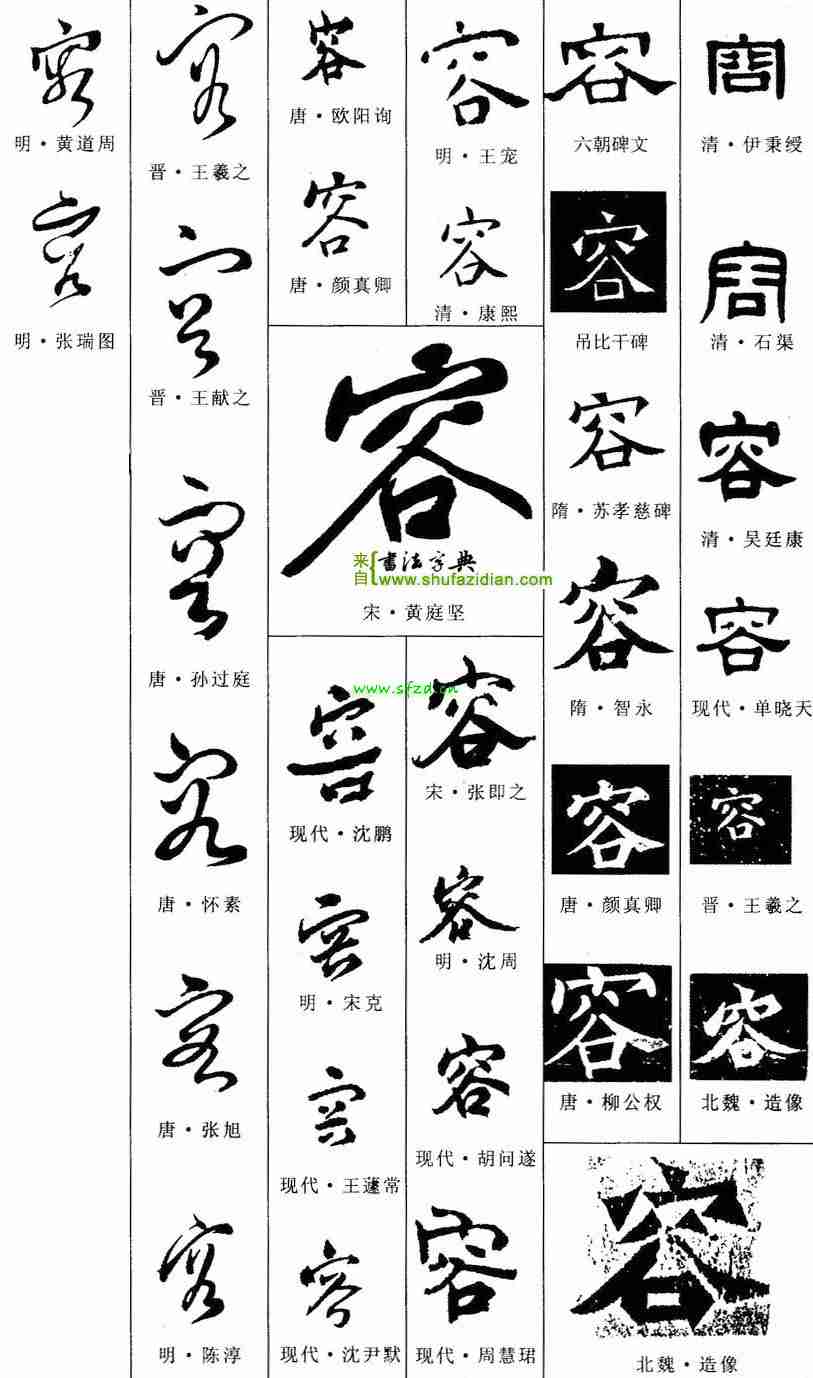 容
明·黄道周
容
明·张瑞图
容
晋·王羲之
容
晋·王献之
容
唐·孙过庭
容
唐·怀素
容
唐·张旭
容
明·陈淳
容
唐·欧阳询
容
唐·颜真卿
容
明·王宠
容
清·康熙
容
来自{书法字典
www.shufazidian.com
宋·黄庭坚
www.sfzd.cn
容
现代·沈鹏
容
明·宋克
容
现代·王蘧常
容
现代·沈尹默
容
宋·张即之
容
明·沈周
容
现代·胡问遂
容
现代·周慧珺
容
六朝碑文
容
吊比干碑
容
隋·苏孝慈碑
容
隋·智永
容
唐·颜真卿
容
唐·柳公权
容
清·伊秉绶
容
清·石渠
容
清·吴廷康
容
现代·单晓天
容
晋·王羲之
容
北魏·造像
容
北魏·造像